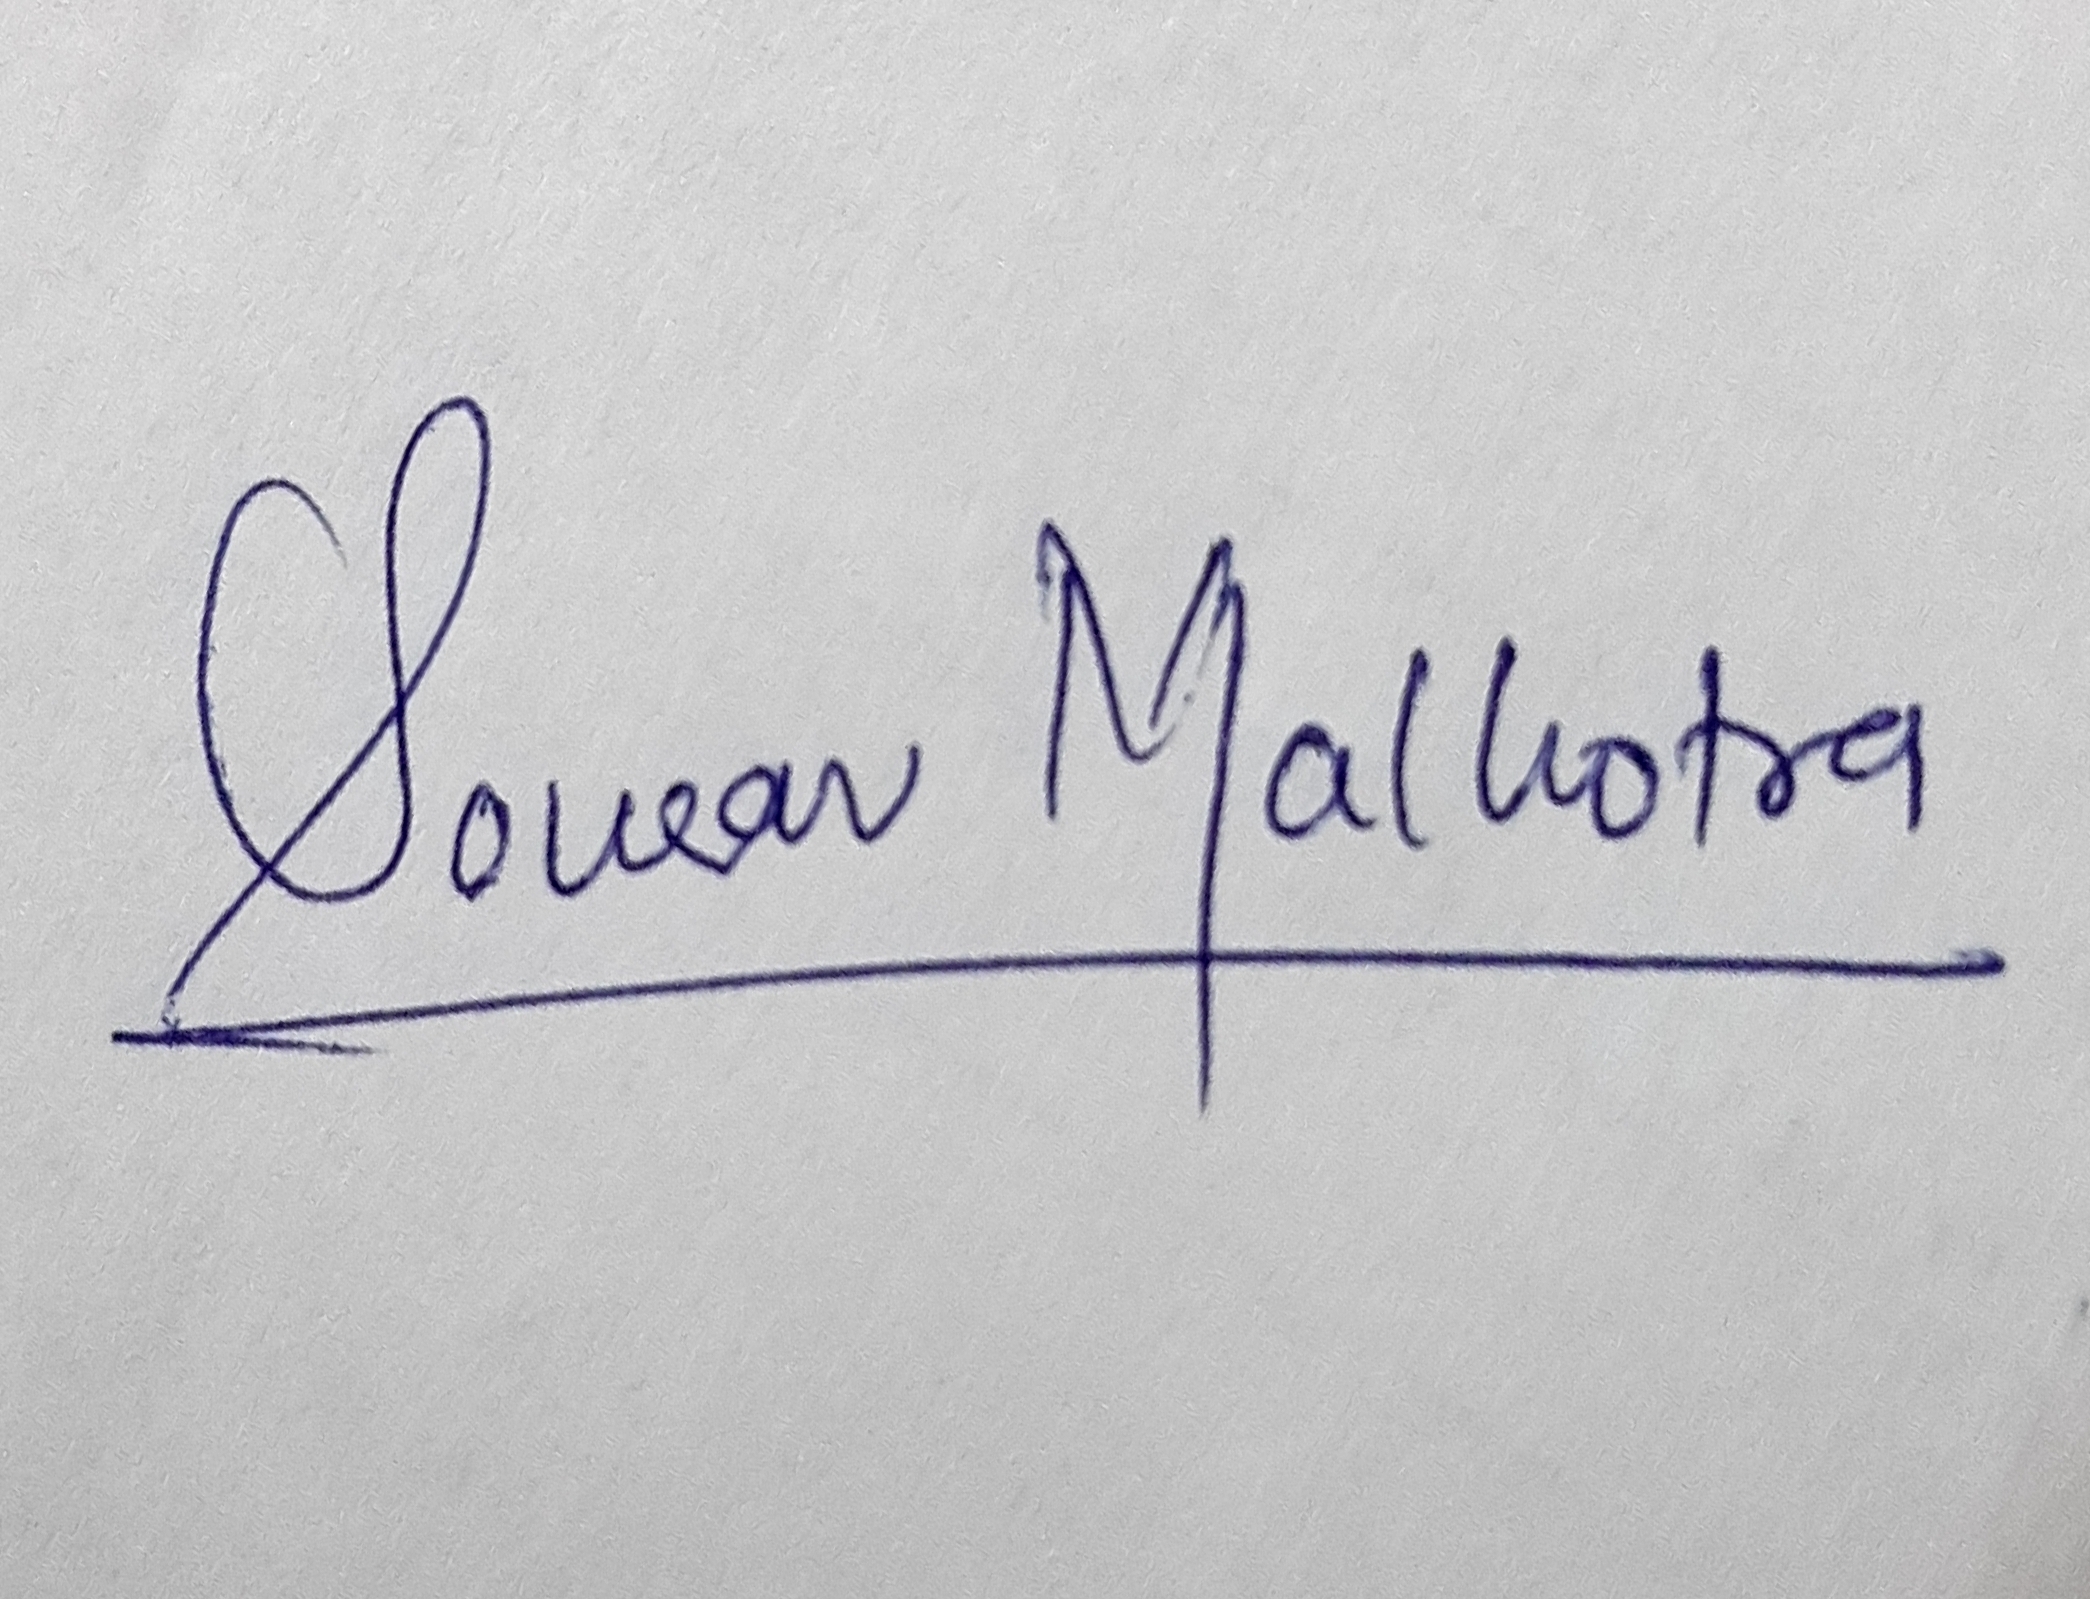 Sourav Malhotra